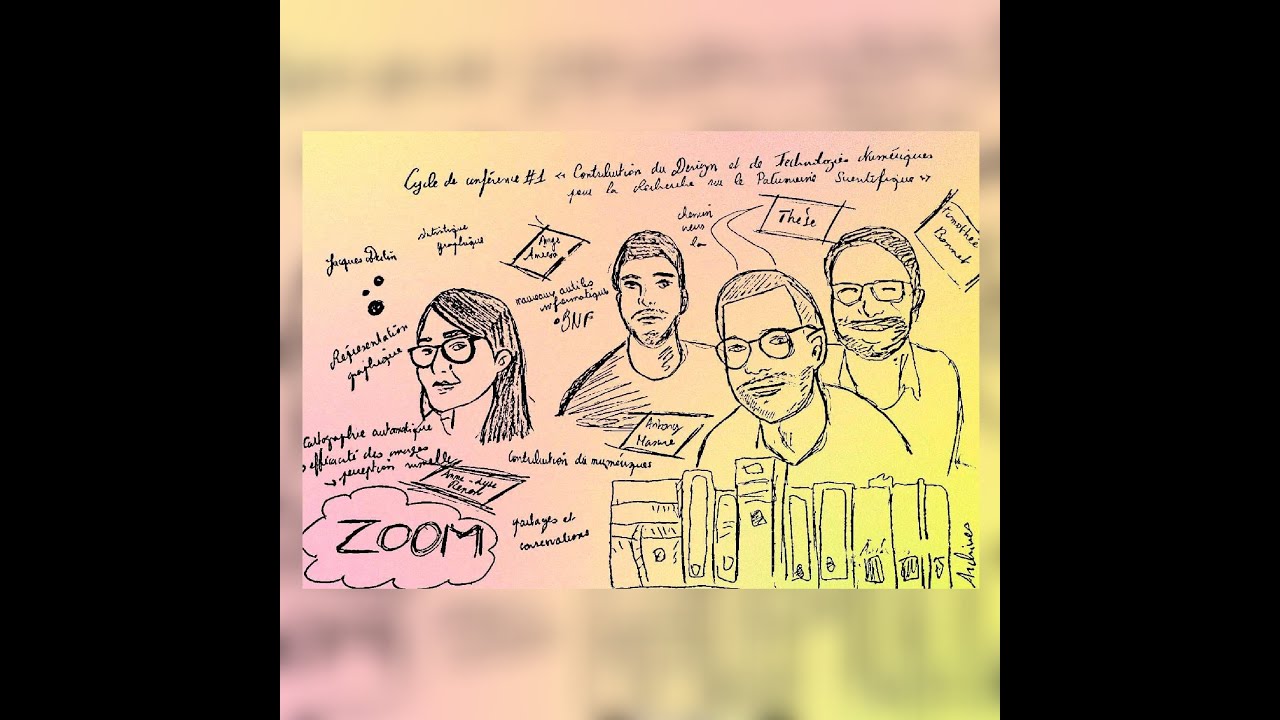 Cycle de conférence #1 « Contribution du Design et de Technologies Numériques
pour la Recherche sur le Patrimoine Scientifique »
Jacques Bertin
graphique
Ange
chemin
vers
la
Thèse
Timothée
Bonnet
nouveaux outils
informatique
BNF
Représentation
graphique
Cartographie automatique
efficacité des images
→ perception
Anthony
Masure
Anne-Lyse
Renon
Contribution du numériques
partages et
conservations
ZOOM
Archives